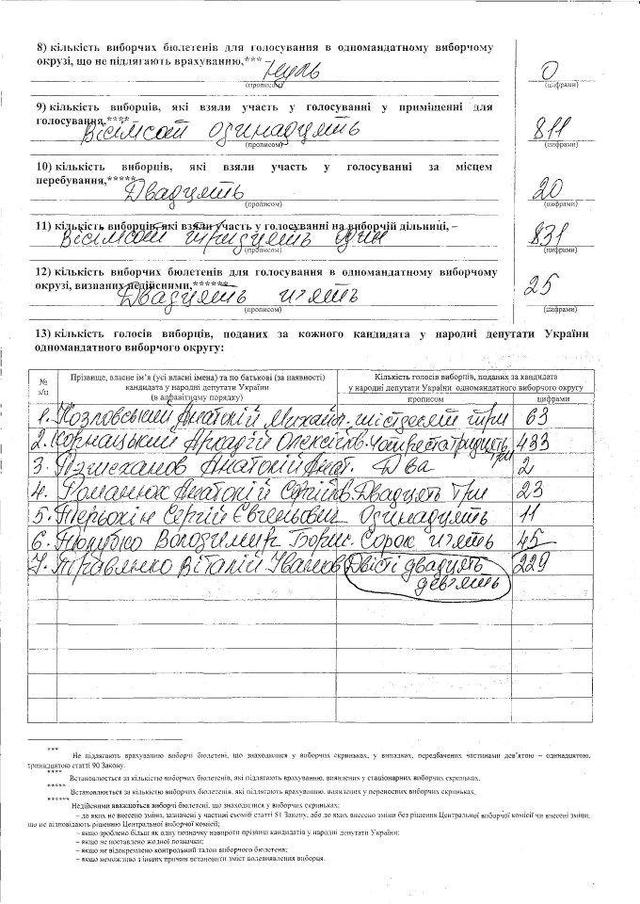 8) кількість виборчих бюлетенів для голосування в одномандатному виборчому
окрузі, що не підлягають врахуванню,*** Нуль 0
(прописом) (цифрами)
9) кількість виборців, які взяли участь у голосуванні у приміщенні для
голосування,**** Вісімсот одинадцять 811
(прописом) (цифрами)
10) кількість виборців, які взяли участь у голосуванні за місцем
перебування,***** Двадцять 20
(прописом) (цифрами)
11) кількість виборців, які взяли участь у голосуванні на виборчій дільниці, –
Вісімсот тридцять один 831
(прописом) (цифрами)
12) кількість виборчих бюлетенів для голосування в одномандатному виборчому
окрузі, визнаних недійсними,****** Двадцять п'ять 25
(прописом) (цифрами)
13) кількість голосів виборців, поданих за кожного кандидата у народні депутати України
одномандатного виборчого округу:
№ з/п Прізвище, власне ім'я (усі власні імена) та по батькові (за наявності) кандидата у народні депутати України (в алфавітному порядку) Кількість голосів виборців, поданих за кандидата у народні депутати України одномандатного виборчого округу
прописом цифрами
1. Козловський Анатолій Михайл. шістдесят три 63
2. Корнацький Аркадій Олексійов. Чотириста тридцять три 433
3. Анатолій Анат. Два 2
4. Романюк Анатолій Сергійов. Двадцять три 23
5. Терьохін Сергій Євгенович Одинадцять 11
6. Володимир Борис. Сорок п'ять 45
7. Травянко Віталій Іванов. Двісті двадцять дев'ять 229
*** Не підлягають врахуванню виборчі бюлетені, що знаходилися у виборчих скриньках, у випадках, передбачених частинами дев'ятою – одинадцятою,
тринадцятою статті 90 Закону.
**** Встановлюється за кількістю виборчих бюлетенів, які підлягають врахуванню, виявлених у стаціонарних виборчих скриньках.
***** Встановлюється за кількістю виборчих бюлетенів, які підлягають врахуванню, виявлених у переносних виборчих скриньках.
****** Недійсними вважаються виборчі бюлетені, що знаходилися у виборчих скриньках:
– до яких не внесено зміни, зазначені у частині сьомій статті 81 Закону, або до яких внесено зміни без рішення Центральної виборчої комісії чи внесені зміни,
що не відповідають рішенню Центральної виборчої комісії;
– якщо зроблено більш як одну позначку навпроти прізвищ кандидатів у народні депутати України;
– якщо не поставлено жодної позначки;
– якщо не відокремлено контрольний талон виборчого бюлетеня;
– якщо неможливо з інших причин встановити зміст волевиявлення виборця.